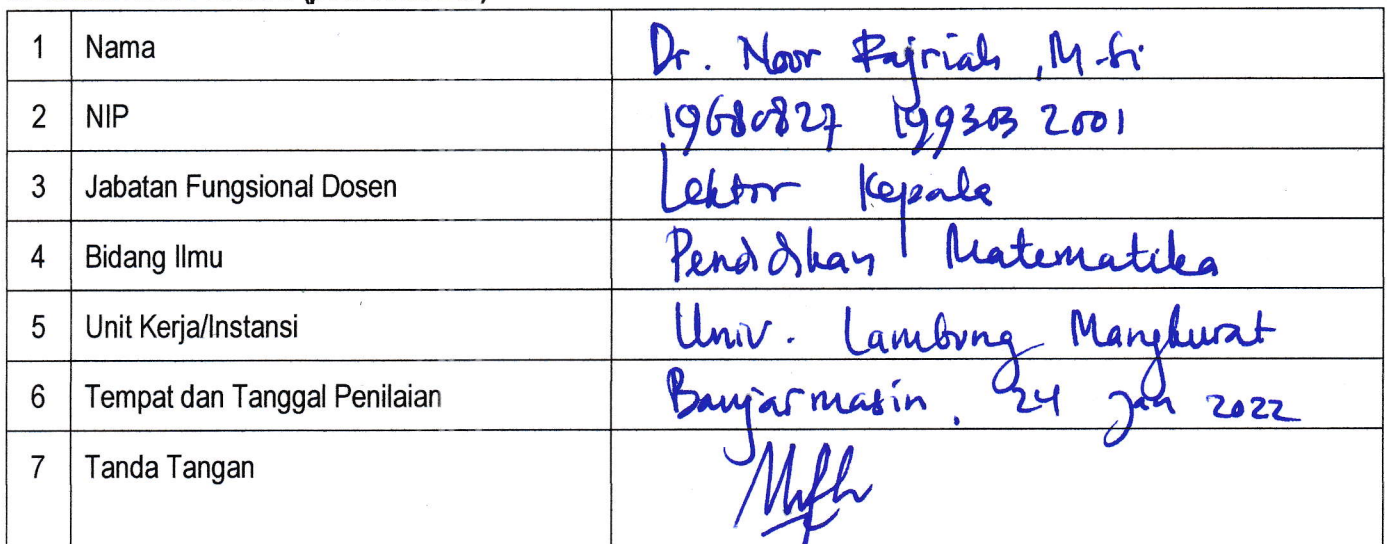 1 Nama Dr. Noor Fajriah, M.Si
2 NIP 19680827 199303 2001
3 Jabatan Fungsional Dosen Lektor Kepala
4 Bidang Ilmu Pendidikan Matematika
5 Unit Kerja/Instansi Univ. Lambung Mangkurat
6 Tempat dan Tanggal Penilaian Banjarmasin, 24 Jan 2022
7 Tanda Tangan